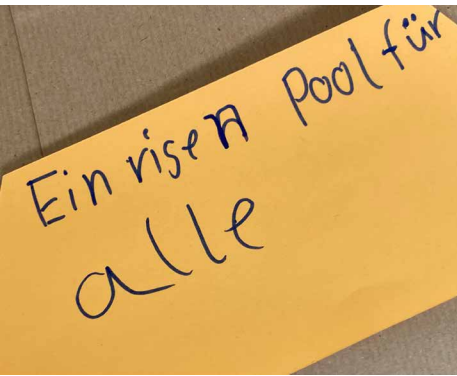 Ein risen Pool für
alle